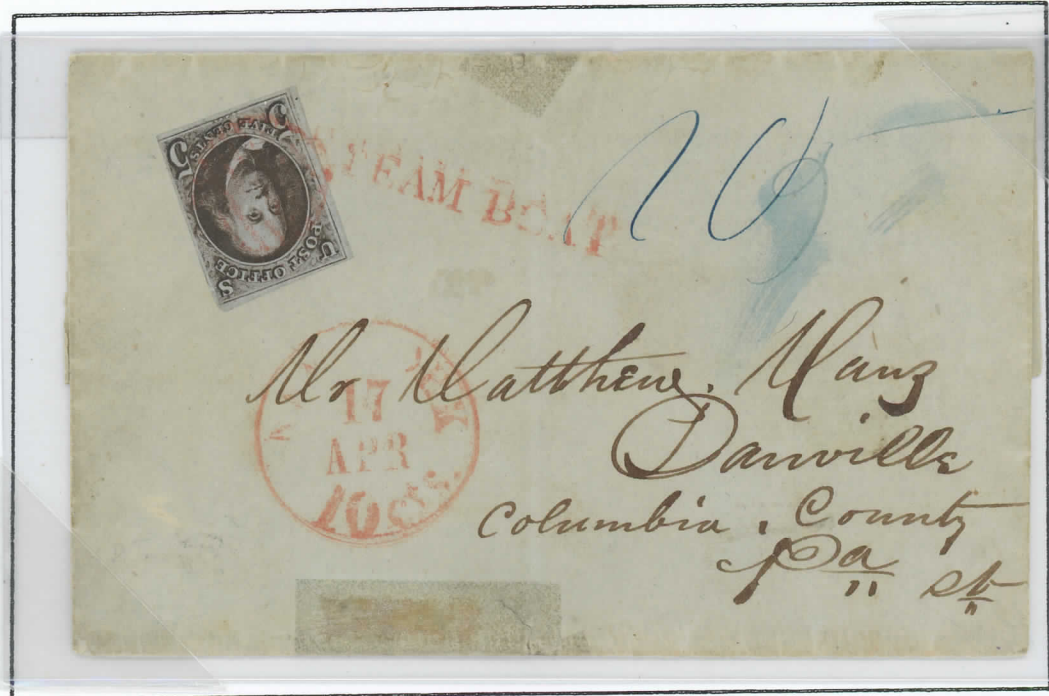 5 5
FIVE CENTS
U S
POST OFFICE
STEAM BOAT
17
APR
10 cts.
Mr Matthew. Manz
Danville
Columbia. County
Pa st